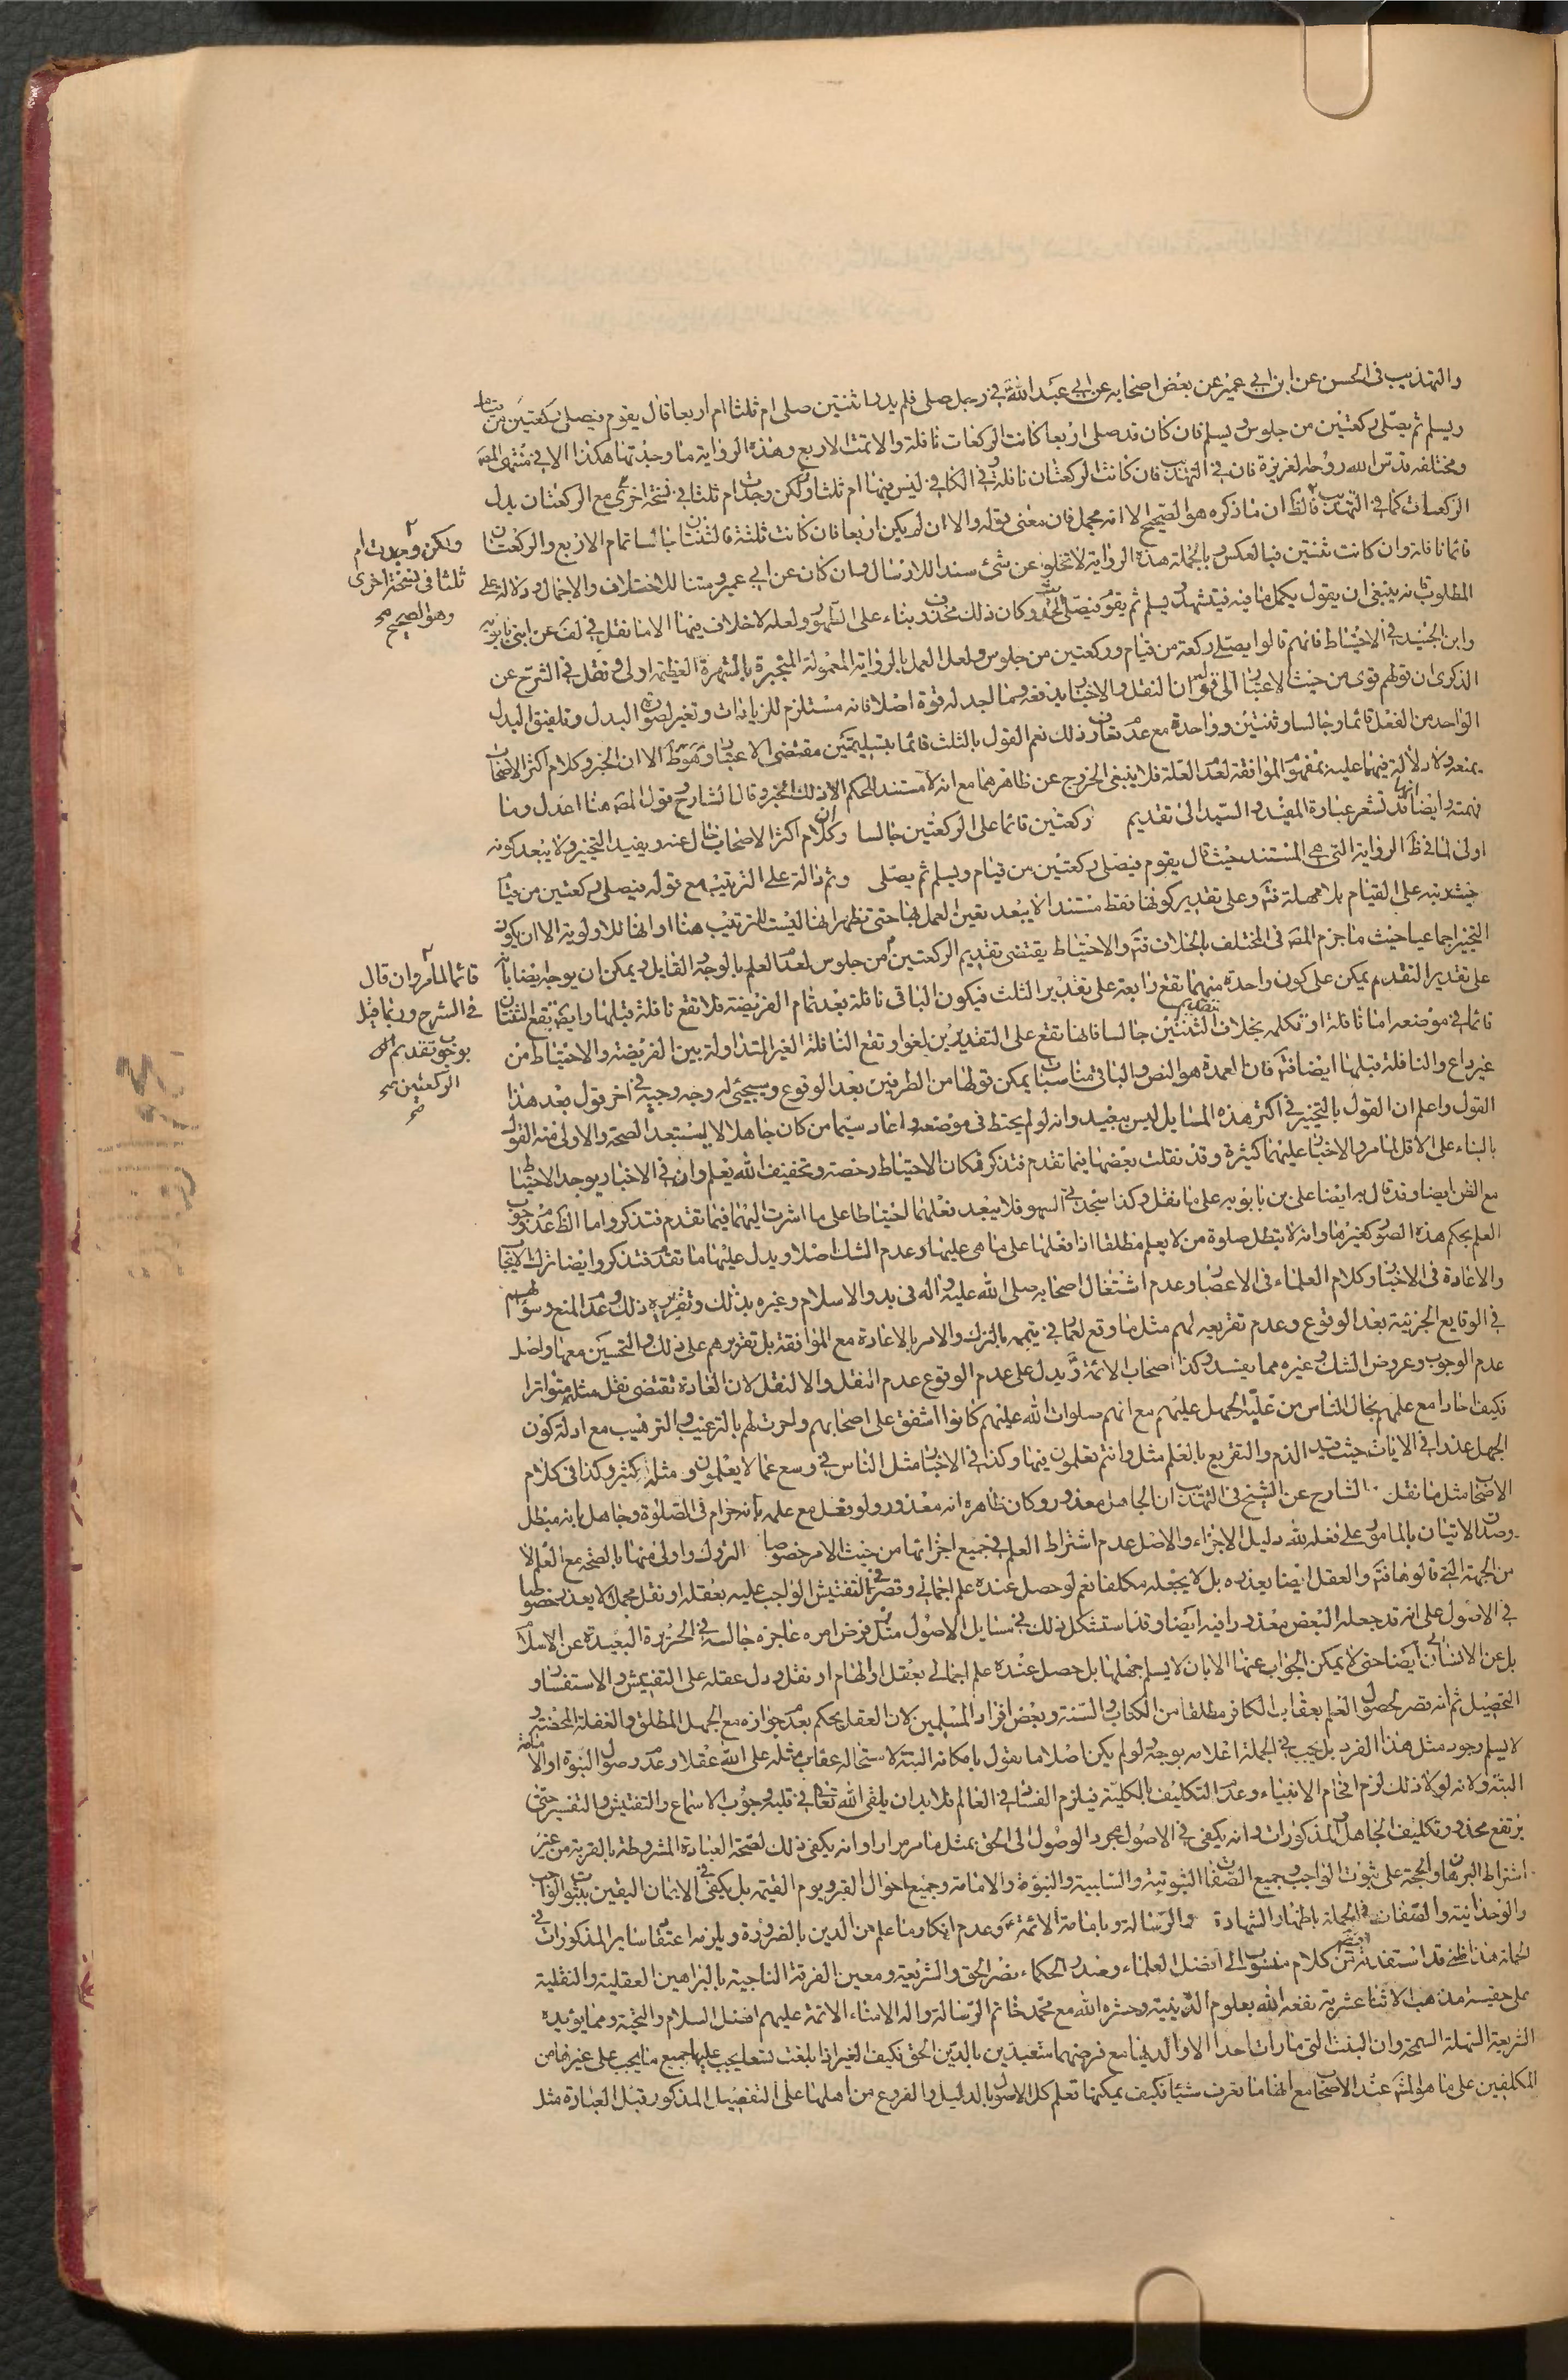 والتهذيب فى الحسن عن ابن ابي عمير عن بعض اصحابه عن ابي عبد الله في رجل صلى فلم يدر اثنتين صلى ام ثلثا ام اربعا قال يقوم فيصلى ركعتين من قيام
ويسلم ثم يصلى ركعتين من جلوس ويسلم فان كان قد صلى اربعا كانت الركعات نافلة والا تمت الاربع وهذه الرواية ما وجدتها هكذا الا في منتهى المصه
ومختلفه قدس الله روحه العزيزة فان في التهذيب فان كانت الركعتان نافلة وفي الكافي ليس فيهما ام ثلثا ولكن وجدت ام ثلثا في نسخة اخرى مع الركعتان بدل
الركعات كما في التهذيب فالظ ان ما ذكره هو الصحيح الا انه مجمل فان معنى قوله والا ان لم يكن اربعا فان كانت ثلثة فالثنتان جالسا تمام الاربع والركعتان
قائما نافلة وان كانت ثنتين فبالعكس وبالجملة هذه الرواية لا تخلو عن شئ سندا للارسال وان كان عن ابي عمير ومتنا للاختلاف والاجمال ودلالة على
ولكن وجدت ام
ثلثا في نسخة اخرى
وهو الصحيح صح
المطلوب فانه ينبغى ان يقول يكمل ما فيه فيتشهد ويسلم ثم يقوم فيصلى الخ وكان ذلك محذوف بناء على الظهور ولعله لا خلاف فيهما الا ما نقل في لف عن ابنى بابويه
وابن الجنيد في الاحتياط فانهم قالوا يصلى ركعة من قيام وركعتين من جلوس ولعل العمل بالرواية المعمولة المنجبرة بالشهرة العظيمة اولى ونقل في الشرح عن
الذكرى ان قولهم قوى من حيث الاعتبار الى قوله ان النقل والاخبار يدفعه وما اجد له قوة اصلا فانه مستلزم للزيادات وتغير لصورة البدل وتلفيق البدل
الواحد من الفعل قائما وجالسا وثنتين وواحدة مع عدم تعارف ذلك نعم القول بالثلث قائما بتسليمتين مقتضى الاعتبار وهو ظ الا ان الخبر وكلام اكثر الاصحاب
يمنعه ولا دلالة فيهما عليه بمفهوم الموافقة لعدم العلة فلا ينبغى الخروج عن ظاهرهما مع انه لا مستند للحكم الا ذلك الخبر وقال الشارح وقول المصه هنا اعدل وما
فهمته وايضا قد تشعر عبارة المفيد والسيد الى تقديم ركعتين قائما على الركعتين جالسا وكان كلام اكثر الاصحاب خال عنه ويفيد التخيير ولا يبعد كونه
اولى لما في ظ الرواية التي هي المستند حيث قال يقوم فيصلى ركعتين من قيام ويسلم ثم يصلى وثم دالة على الترتيب مع قوله فيصلى ركعتين من قيام
حيث رتبه على القيام بلا مهملة فتم وعلى تقدير كونها فقط مستندا لا يبعد تعين العمل بها حتى تظهر انها ليست للترتيب هنا او انها للاولوية الا ان يكون
التخيير اجماعيا حيث ما جزم المصه في المختلف بالخلاف فتم والاحتياط يقتضى تقديم الركعتين من جلوس لعدم العلم بالوجه القايل ويمكن ان يوجه ايضا بانهما
على تقدير التقديم يمكن على كون واحدة منهما تقع رابعة على تقدير الثلث فيكون الباقى نافلة بعد تمام الفريضة فلا تقع نافلة قبلها وايضا تقع الثنتان
قائما لما مر وان قال
في الشرح وربما قيل
بوجوب تقديم
الركعتين صح
قائما في موضعه اما نافلة او تكمله بخلاف تقديم الثنتين جالسا فانها تقع على التقديرين لغوا وتقع النافلة الغير المتداولة بين الفريضة والاحتياط من
غير داع والنافلة قبلها ايضا فتم فان العمدة هو النص والباقى مناسبات يمكن قولها من الطرفين بعد الوقوع وسيجئ له وجه وجيه في اخر قول بعد هذا
القول واعلم ان القول بالتخيير في اكثر هذه المسايل ليس ببعيد وانه لو لم يحتط في موضعه واعاد سيما من كان جاهلا لا يستبعد الصحة والاولى منه القول
بالبناء على الاقل لما مر والاخبار عليهما كثيرة وقد نقلت بعضها فيما تقدم فتذكر فكان الاحتياط رخصة وتخفيف الله يعلم وان في الاخبار يوجد الاحتياط
مع الظن ايضا وقد قال به ايضا على بن بابويه على ما نقل وكذا سجدتي السهو فلا يبعد فعلهما احتياطا على ما اشرت اليهما فيما تقدم فتذكر واما الظ عدم وجوب
العلم بحكم هذه الصور كغيرها وانه لا تبطل صلوة من لا يعلم مطلقا اذا فعلها على ما هى عليها وعدم الشك اصلا ويدل عليهما ما تقدم فتذكر وايضا ترك الايجاب
والاعادة في الاخبار وكلام العلماء في الاعصار وعدم اشتغال اصحابه صلى الله عليه واله فى بدو الاسلام وغيره بذلك وتقريره ذلك وعدم المنع وسؤالهم
في الوقايع الجزئية بعد الوقوع وعدم تقريعه لهم مثل ما وقع لعمار في تيممه بالترك والامر بالاعادة مع الموافقة بل تقريرهم على ذلك والتحسين معها واصل
عدم الوجوب وعروض الشك وغيره مما يفسد وكذا اصحاب الائمة ويدل على عدم الوقوع عدم النقل والا لنقل لان العادة تقتضى نقل مثله متواترا
فكيف احادا مع علمهم بحال الناس من غلبة الجهل عليهم مع انهم صلوات الله عليهم كانوا اشفق على اصحابهم واحرث لهم بالترغيب والترهيب مع ادلة كون
الجهل عذرا في الايات حيث قيد الذم والتقريع بالعلم مثل وانتم تعلمون فيها وكذا في الاخبار مثل الناس في وسع عما لا يعلمون ومثله كثير وكذا فى كلام
الاصحاب مثل ما نقل الشارح عن الشيخ في التهذيب ان الجاهل معذور وكان ظاهره انه معذور ولو فعل مع علمه بانه حرام في الصلوة وجاهل بانه مبطل
وصدق الاتيان بالمامور على فعله لله دليل الاجزاء والاصل عدم اشتراط العلم في جميع اجزائها من حيث الامر خصوصا التروك واولى منها بالصحة مع العلم لا
من الجهة التى قالوها فتم والعقل ايضا يعذره بل لا يجعله مكلفا نعم لو حصل عنده علم اجمالي وقصر في التفتيش الواجب عليه بعقله او نقل مجملا لا يعذر خصوصا
في الاصول على انه قد جعله البعض معذورا فيه ايضا وقد استشكل ذلك في مسايل الاصول مثل فرض امره عاجزه جالسه في الجزيرة البعيدة عن الاسلام
بل عن الانسان ايضا حتى لا يمكن الجواب عنها الا بان لا يسلم جهلها بل حصل عنده علم اجمالي بعقل او الهام او نقل ودل عقله على التفتيش والاستفسار و
التحصيل ثم انه قصر لحصول العلم بعقاب الكافر مطلقا من الكتاب والسنة وبعض افراد المسلمين لان العقل يحكم بعدم جوازه مع الجهل المطلق والغفلة المحضة و
لا يسلم وجود مثل هذا الفرد بل يجب في الجملة اعلامه بوجه لو لم يكن اصلا ما نقول بامكانه البتة لاستحاله عقاب مثله على الله عقلا وعدم وصول النبوة اولا
البتة ولانه لولا ذلك لزم افحام الانبياء وعدم التكليف بالكلية فيلزم الفساد في العالم فلا بد ان يلقى الله تعالى في قلبه وجوب الاستماع والتفتيش والتفسير حتى
يرتفع محذور تكليف الجاهل والمذكورات وانه يكفى في الاصول مجرد الوصول الى الحق بمثل ما مر مرارا وانه يكفى ذلك لصحة العبادة المشروطة بالقربة من غير
اشتراط البرهان والحجة على ثبوت الواجب وجميع الصفات الثبوتية والسلبية والنبوة والامامة وجميع احوال القبر ويوم القيمة بل يكفى في الايمان اليقين بثبوت الواجب
والوحدانية والصفات في الجملة باظهار الشهادة والرسالة وبامامة الائمة وعدم انكار ما علم من الدين بالضرورة ويلزمه اعتقاد ساير المذكورات في
الجملة هذا ظنى قد استفدته من كلام منسوب الى افضل العلماء وصدر الحكماء نصر الحق والشريعة ومعين الفرقة الناجية بالبراهين العقلية والنقلية
على حقية مذهب الاثنا عشرية نفعه الله بعلوم الدينية وحشره الله مع محمد خاتم الرسالة واله الامناء الائمة عليهم افضل السلام والتحية ومما يؤيده
الشريعة السهلة السمحة وان البنت التى ما رات احدا الا والديها مع فرضهما متعبدين بالدين الحق فكيف الغير اذا بلغت تسعا يجب عليها جميع ما يجب على غيرها من
المكلفين على ما هو المشهور عند الاصحاب مع انها ما تعرف شيئا فكيف يمكنها تعلم كل الاصول بالدليل والفروع من اهلها على التفصيل المذكور قبل العبادة مثل